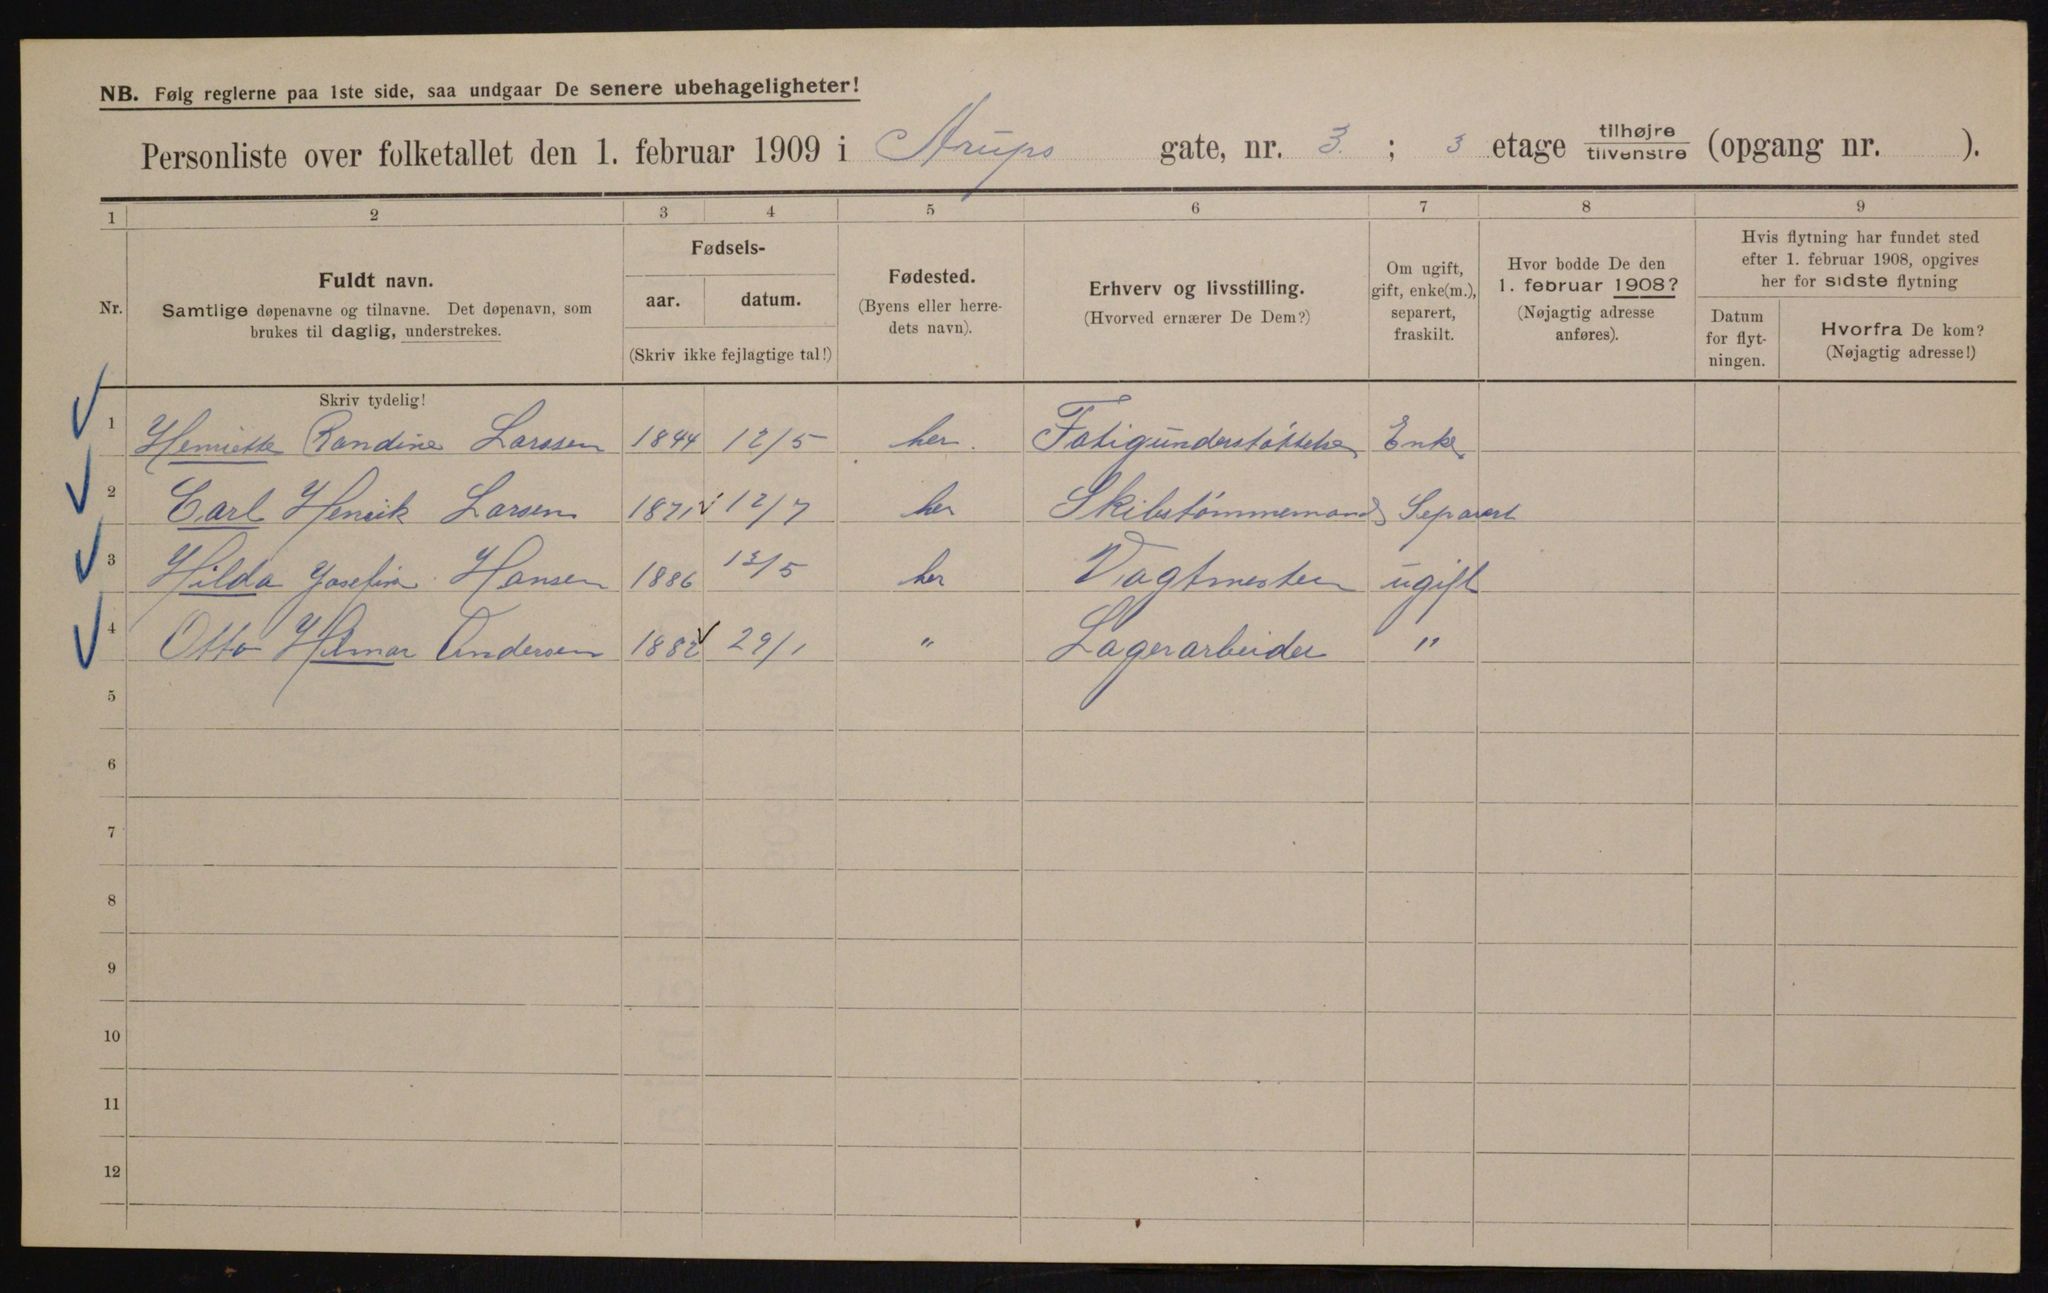 NB. Følg reglerne paa 1ste side, saa undgaar De senere ubehageligheter!
Personliste over folketallet den 1. februar 1909 i Arups gate, nr. 3 ; 3 etage tilhøjre / tilvenstre (opgang nr. ).
1 2 3 4 5 6 7 8 9
Nr.
Fuldt navn.
Samtlige døpenavne og tilnavne. Det døpenavn, som
brukes til daglig, understrekes.
Fødsels-
aar. datum.
(Skriv ikke fejlagtige tal!)
Fødested.
(Byens eller herre-
dets navn).
Erhverv og livsstilling.
(Hvorved ernærer De Dem?)
Om ugift,
gift, enke(m.),
separert,
fraskilt.
Hvor bodde De den
1. februar 1908?
(Nøjagtig adresse
anføres).
Hvis flytning har fundet sted
efter 1. februar 1908, opgives
her for sidste flytning
Datum
for flyt-
ningen.
Hvorfra De kom?
(Nøjagtig adresse!)
Skriv tydelig!
1 Henriette Randine Larssen 1844 12/5 her. Fatigunderstøttelse Enke
2 Carl Henrik Larsen 1871 12/7 her Skibstømmemand Separert
3 Hilda Josefine Hansen 1886 13/5 her ugift
4 Otto Hilmar Andersen 1882 29/1 " Lagerarbeider "
5
6
7
8
9
10
11
12